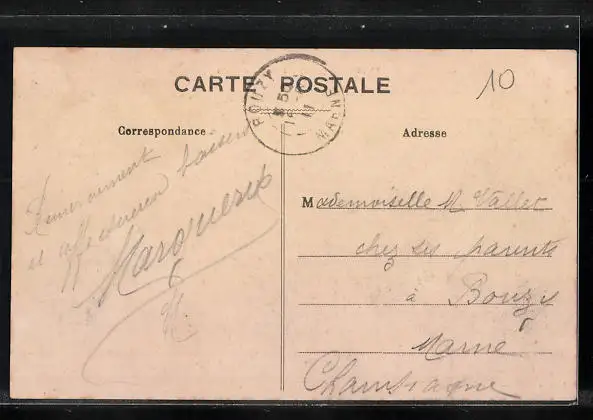 CARTE POSTALE
10
BOUZY
MARNE
Correspondance
Adresse
Remerciement
et affectueux baisers
Marguerite
Mademoiselle M Vallet
chez ses parents
à Bouzy
Marne
Champagne